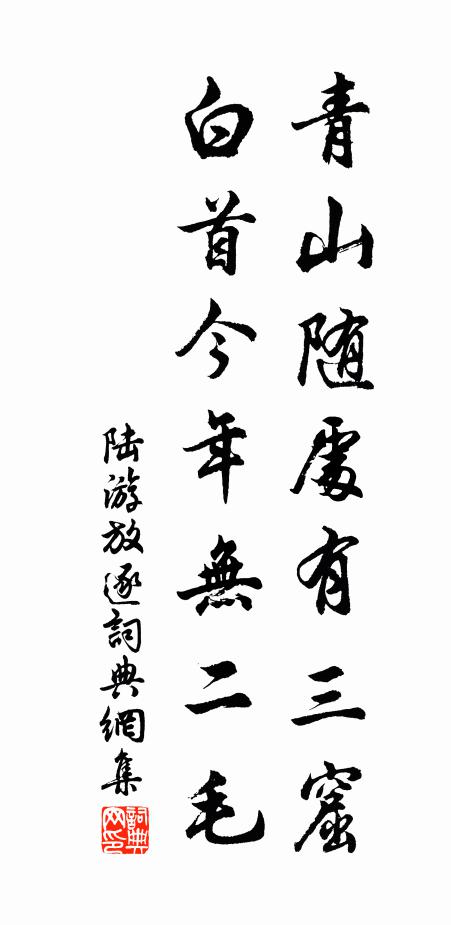 青山随處有三窟
白首今年無二毛
陆游放逐詞典網集
詞典网印